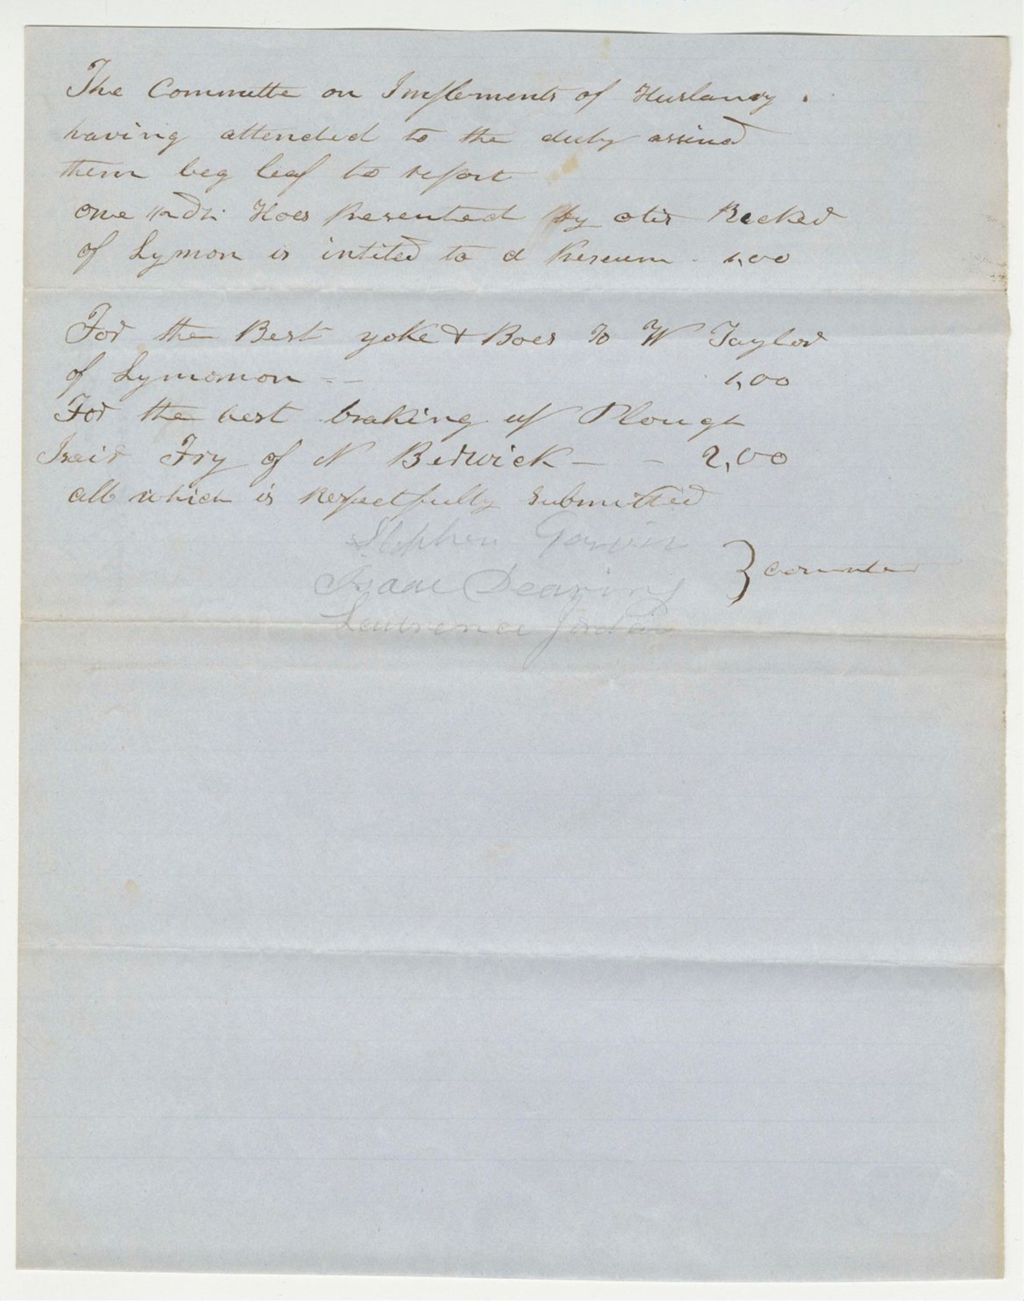 The Committe on Implements of Huslandy.
having attended to the duty assined
them beg leaf to report
one Hoes Presented by otis Ricked
of Lymon is intited to a Preseum - 1,00
For the Best yoke & Boes to W Taylor
of Lymomon - - 1,00
For the best braking up Plough
Fry of N Berwick - - 2,00
all which is Respectfully Submitted
Stephen
Isaac Dearing } 
Lawrence Jordan